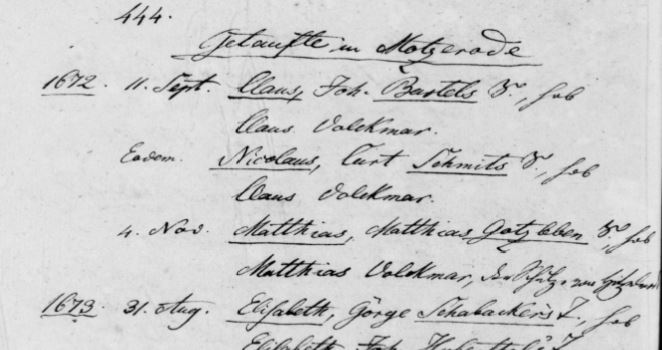 444.
Getaufte in Motzerode
1672. 11. Sept. Claus, Joh. Bartels S., hob
Claus Volckmar.
Eodem. Nicolaus, Curt Schmits S., hob
Claus Volckmar.
4. Nov. Matthias, Matthias Gotzleben S., hob
Matthias Volckmar, der
1673. 31. Aug. Elisabeth, Görge Schabacker's T., hob
Elisabeth, Joh. T.